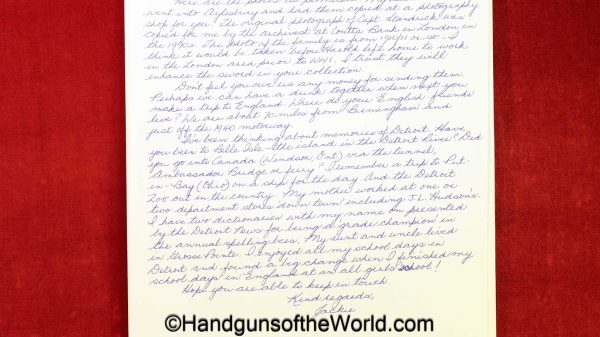 Here are the photos as promised. My
went into Aylesbury and had them copied at a photography
shop for you. The original photograph of Capt. Kendrick was
copied for me by the archivist at Coutts Bank in London in
the 1990s. The photo of the family is from 1910/11 or so - I
think it would be taken before Harold left home to work
in the London area prior to WW1. I trust they will
enhance the sword in your collection.
Don't feel you owe us any money for sending them.
Perhaps we can have a drink together when next you
make a trip to England. Where do your English friends
live? We are about 70 miles from Birmingham and
just off the M40 motorway.
I've been thinking about memories of Detroit. Have
you been to Belle Isle - the island in the Detroit River? Did
you go into Canada (Windsor, Ont) via the tunnel,
Ambassador Bridge or ferry? I remember a trip to Put-
in-Bay (Ohio) on a ship for the day. And the Detroit
Zoo out in the country. My mother worked at one or
two department stores down town including J.L. Hudson's.
I have two dictionaries with my name on presented
by the Detroit News for being a grade champion in
the annual spelling bees. My aunt and uncle lived
in Grosse Pointe. I enjoyed all my school days in
Detroit and found a big change when I finished my
school days in England at an all girls school!
Hope you are able to keep in touch.
Kind regards,
Jackie
©HandgunsoftheWorld.com